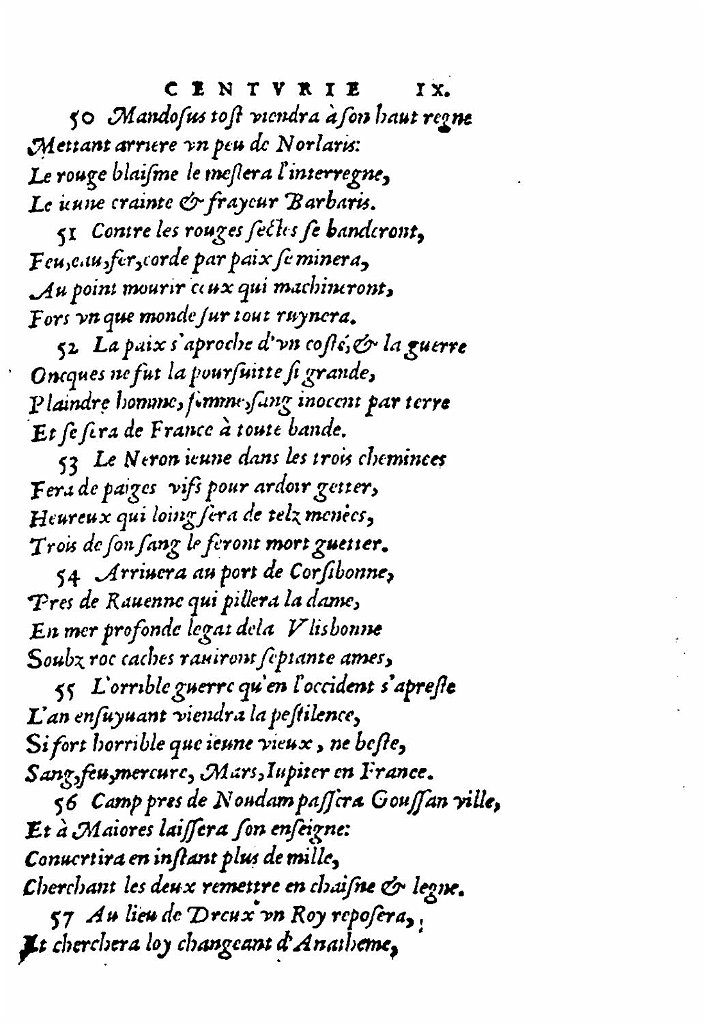 CENTVRIE IX.
50 Mandoſus toſt viendra à ſon haut regne
Mettant arriere vn peu de Norlaris:
Le rouge blaiſme le meſlera l'interregne,
Le ieune crainte & frayeur Barbaris.
51 Contre les rouges ſectes ſe banderont,
Feu,eau,fer,corde par paix ſe minera,
Au point mourir ceux qui machineront,
Fors vn que monde ſur tout ruynera.
52 La paix s'aproche d'vn coſté,& la guerre
Oncques ne fut la pourſuitte ſi grande,
Plaindre homme, femme,ſang inocent par terre
Et ſe fera de France à toute bande.
53 Le Neron ieune dans les trois cheminees
Fera de paiges vifs pour ardoir getter,
Heureux qui loing ſera de telz menées,
Trois de ſon ſang le feront mort guetter.
54 Arriuera au port de Corſibonne,
Pres de Rauenne qui pillera la dame,
En mer profonde legat dela Vlisbonne
Soubz roc caches rauiront ſeptante ames,
55 L'orrible guerre qu'en l'occident s'apreſte
L'an enſuyuant viendra la peſtilence,
Si fort horrible que ieune vieux, ne beſte,
Sang,feu,mercure, Mars,Iupiter en France.
56 Camp pres de Noudam paſſera Gouſſan ville,
Et à Maiores laiſſera ſon enſeigne:
Conuertira en inſtant plus de mille,
Cherchant les deux remettre en chaiſne & legne.
57 Au lieu de Dreux vn Roy repoſera,
Et cherchera loy changeant d'Anatheme,